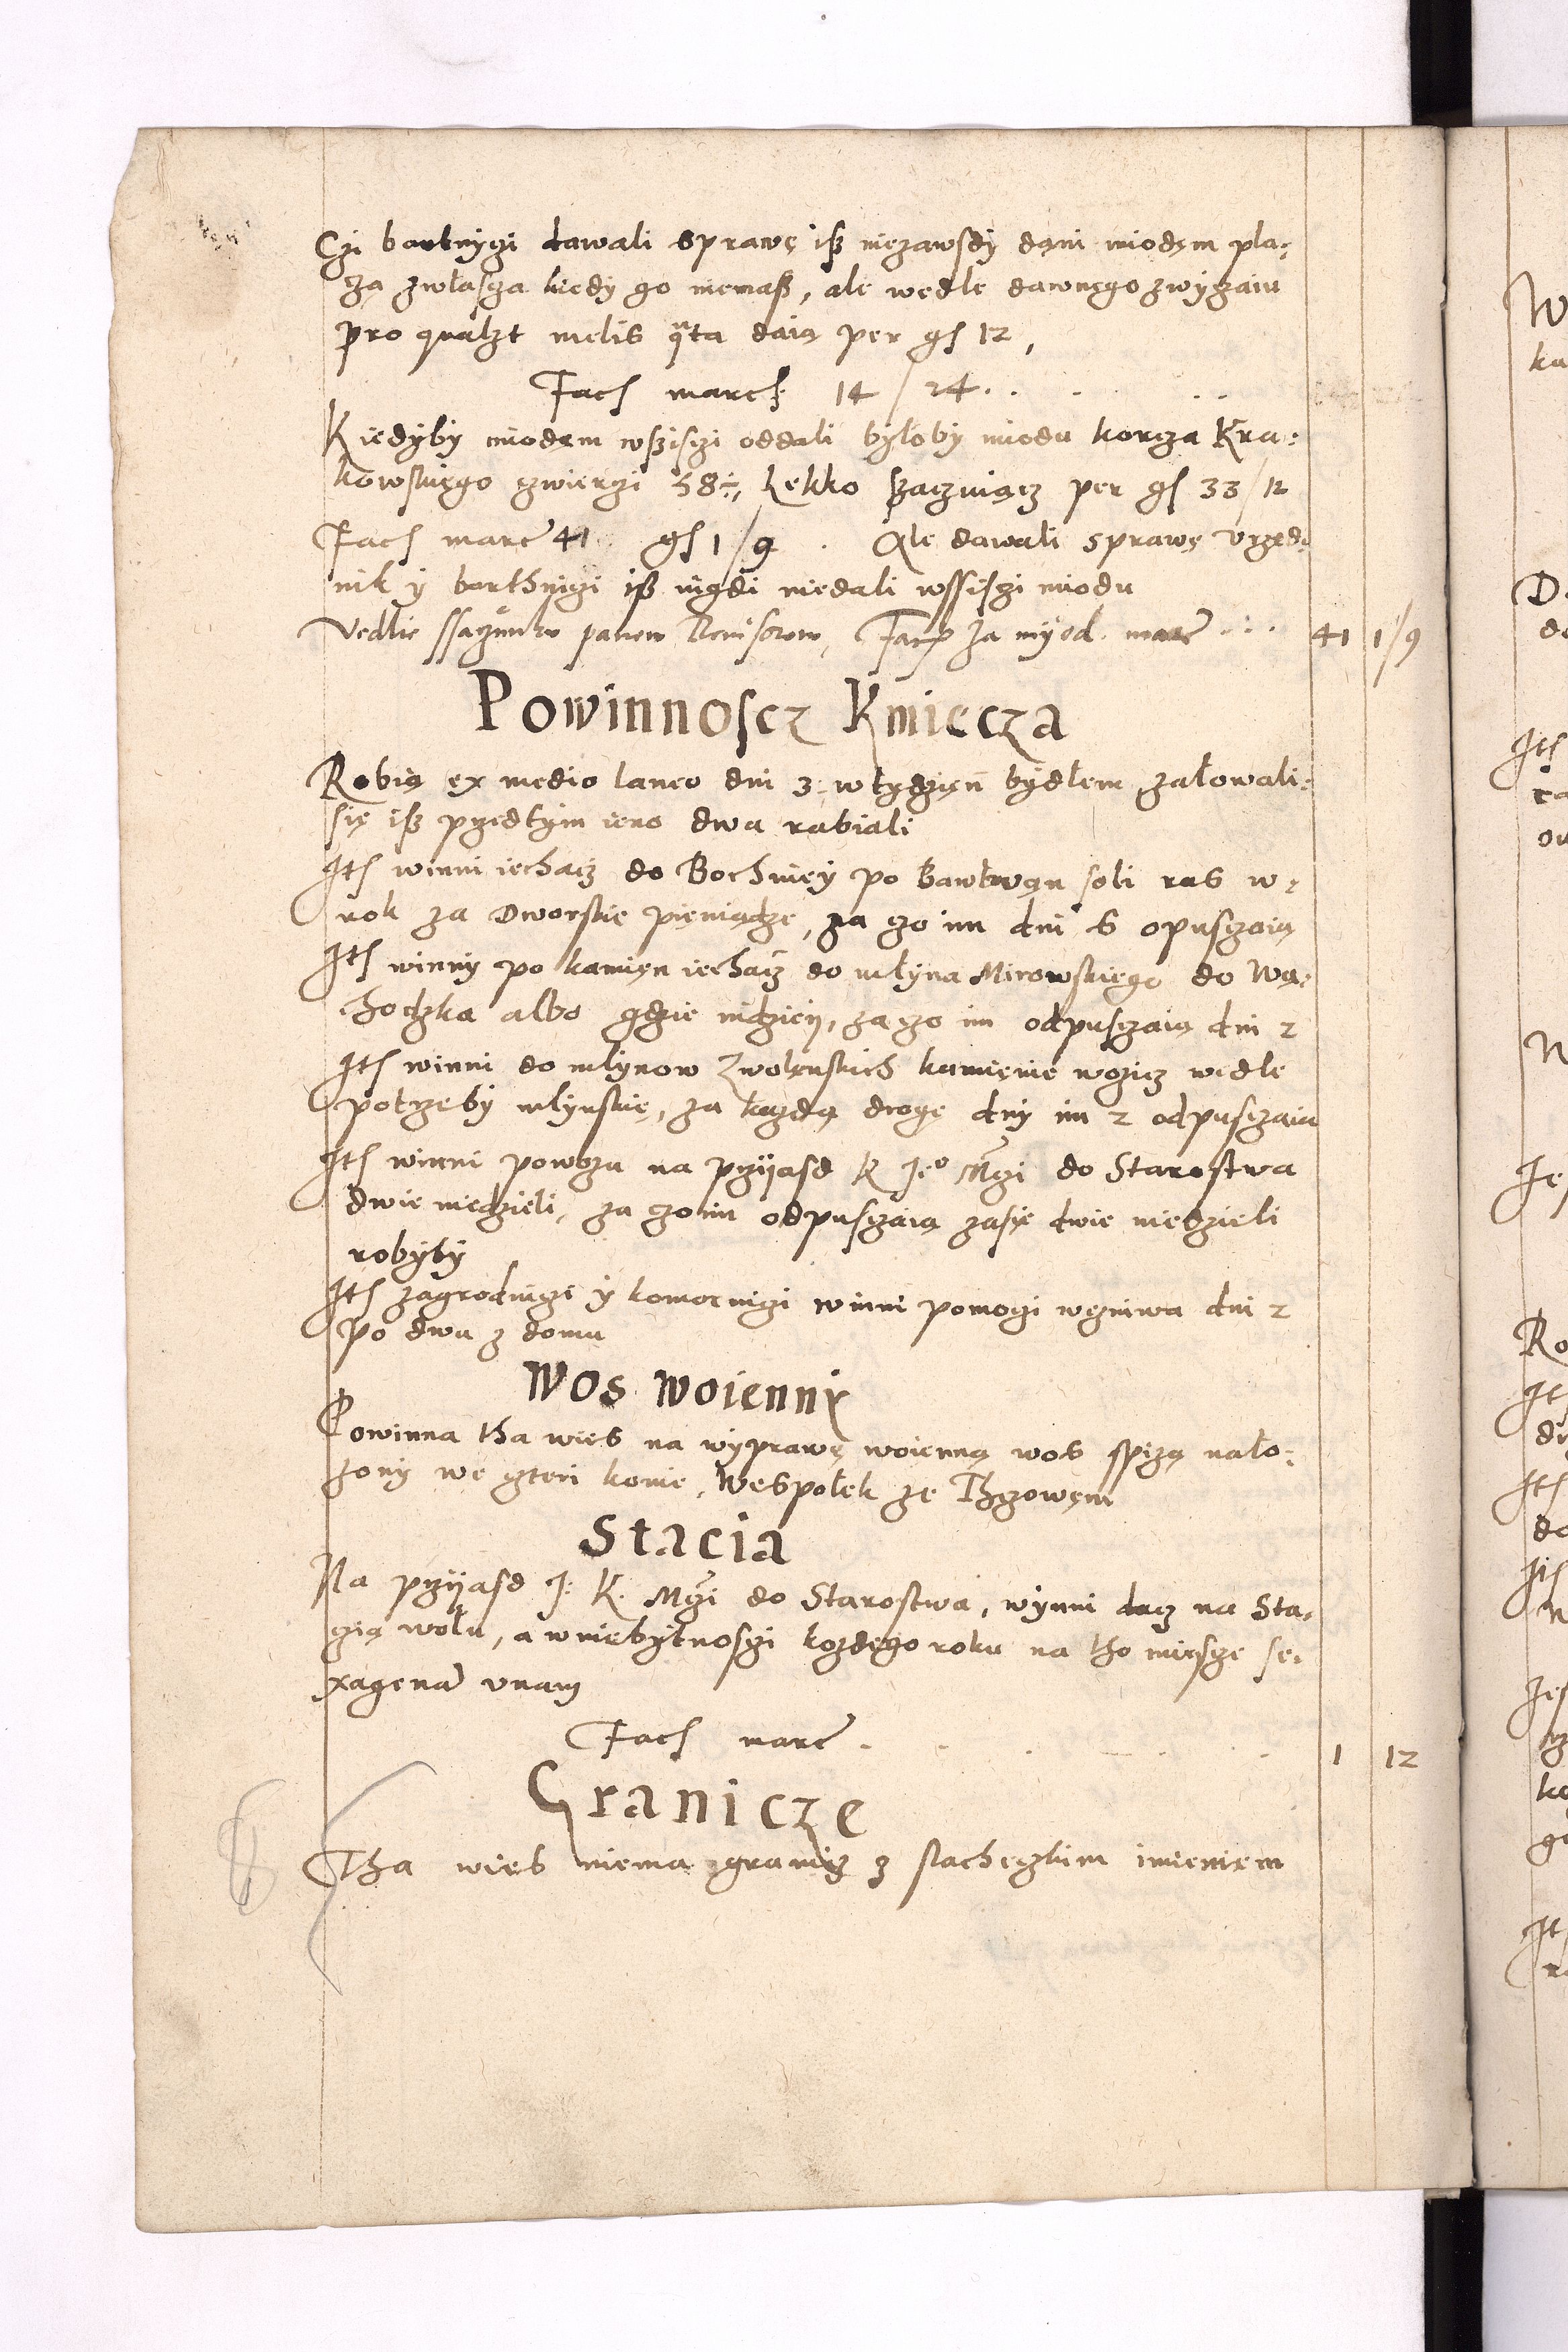 Czi bartnyczi dawali sprawę isz niezawsdy dani miodęm pla-
czą zwłascza kiedy go niemasz, ale wedle dawnego zwyczaiu
pro qualzt melis qta daią per gs 12,
Facs march 14/24
Kiedyby miodem wszisczi oddali byłoby miodu korcza Kra-
kowskiego czwierczi 58 ÷, Lekko szaczuiącz per gs 33/12
Facs marc 41 gs 1/9. Ale dawali sprawę vrzęd-
nik y barthniczi isz nigdi niedali wssisczi miodu
Vedlie ssaczunku panow Reuisorow, Facs za myod marc 41 1/9
Powinnoscz Kmiecza
Robią ex medio laneo dni 3 w tydzięn bydłem, załowali
się isz przedtym ieno dwa rabiali
Its winni iechacz do Bochniey po bałwąn soli ras w
rok za Dworskie pieniądze, za czo im dni 6 opusczaią
Its winny po kamięn iechacz do młyna Mirowskiego do Wą-
chodzka albo gdzie indzięy, za czo im odpusczaią dni 2
Its winni do młynow Zwolęnskich kamienie wozicz wedle
potrzeby młynskię, za kazdą drogę dny im 2 odpusczaią
Its winni powozu na przyiasd K Je° Mczi do Starostwa
dwie niedzieli, za czo im odpusczaią zasię dwie niedzieli
robyty
Its zagrodniczi y komorniczi winni pomogi węzniwa dni 2
po dwu z domu
Wos woienny
Powinna tha wies na wyprawę woienną wos spizą nało-
zony we czteri konie, Wespołek ze Thczowęm
Stacia
Na przyiasd J: K. Mczi do Starostwa, wynni dacz na Sta-
czią wołu, a wniebytnosczi kozdego roku na tho miescze se-
xagenam vnam
Facs marc 1 12
Granicze
Tha wies niema granicz z slacheczkim imienięm